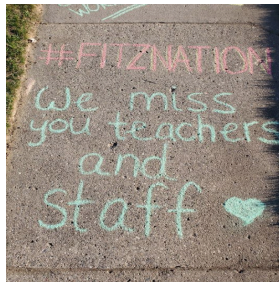 #FITZNATION
We miss
you teachers
and
staff